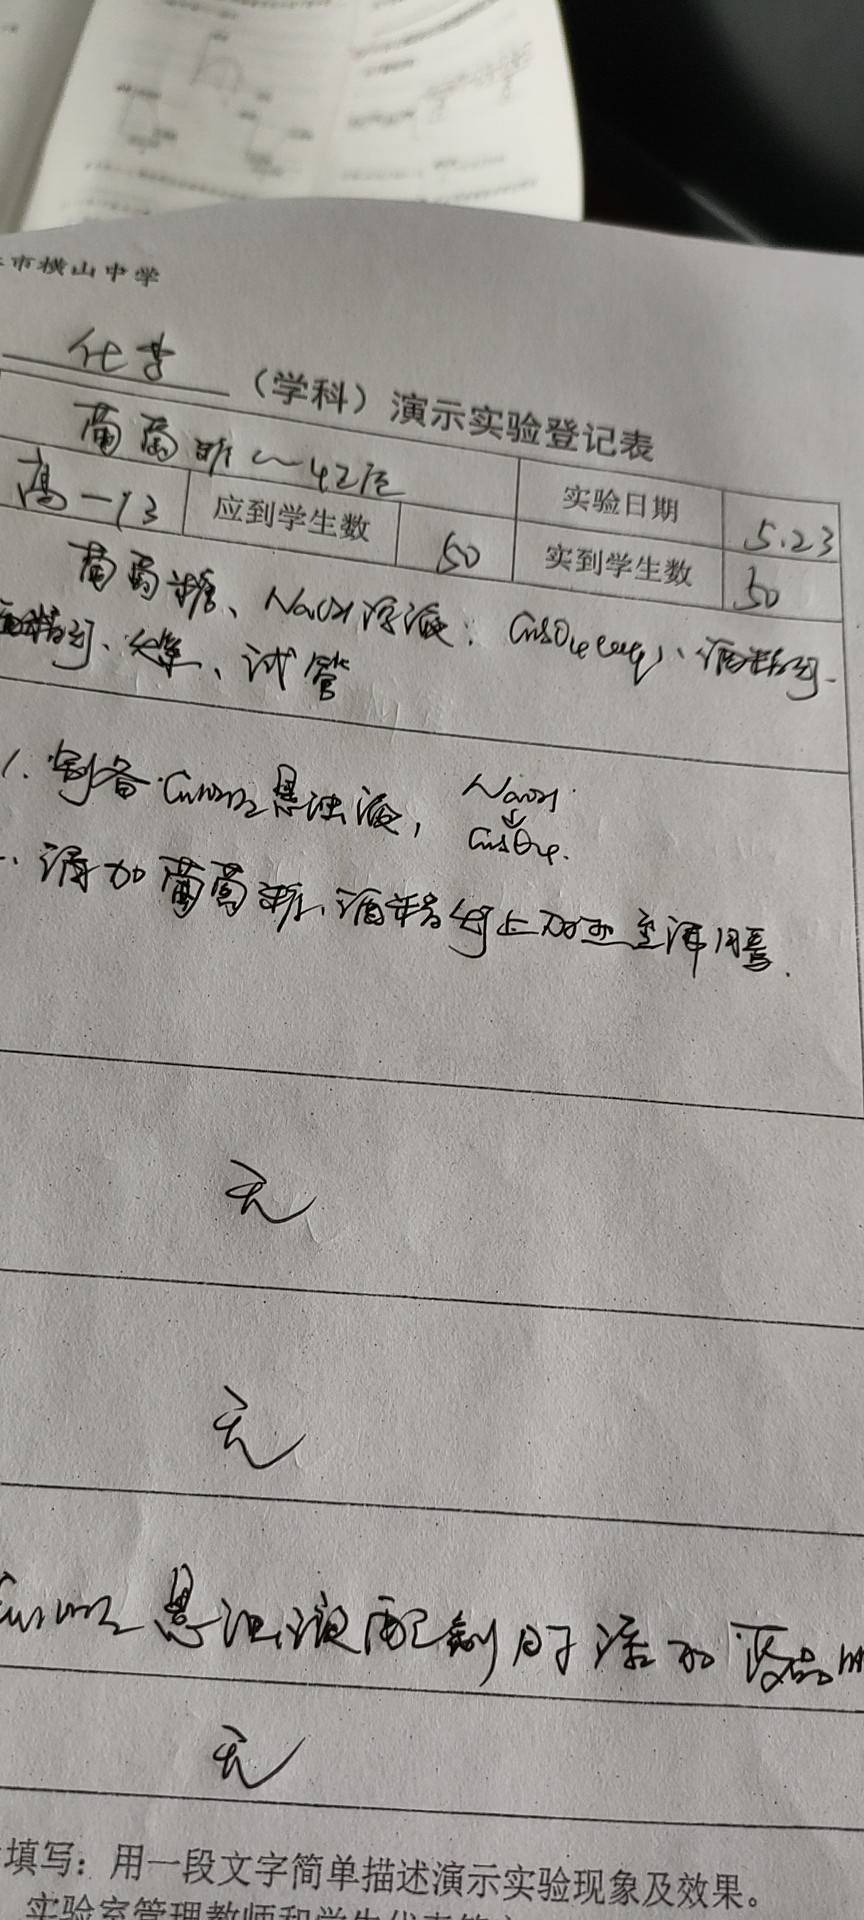 市横山中学
化学（学科）演示实验登记表
葡萄糖
实验日期 5.23
高一13 应到学生数 50 实到学生数 50
葡萄糖、NaOH溶液、CuSO4(aq)、酒精灯
火柴、试管
1. 制备Cu(OH)2悬浊液， NaOH
↓
CuSO4.
滴加葡萄糖,酒精灯上加热至沸腾.
无
无
Cu(OH)2悬浊液配制时
无
填写：用一段文字简单描述演示实验现象及效果。
实验室管理教师和学生代表